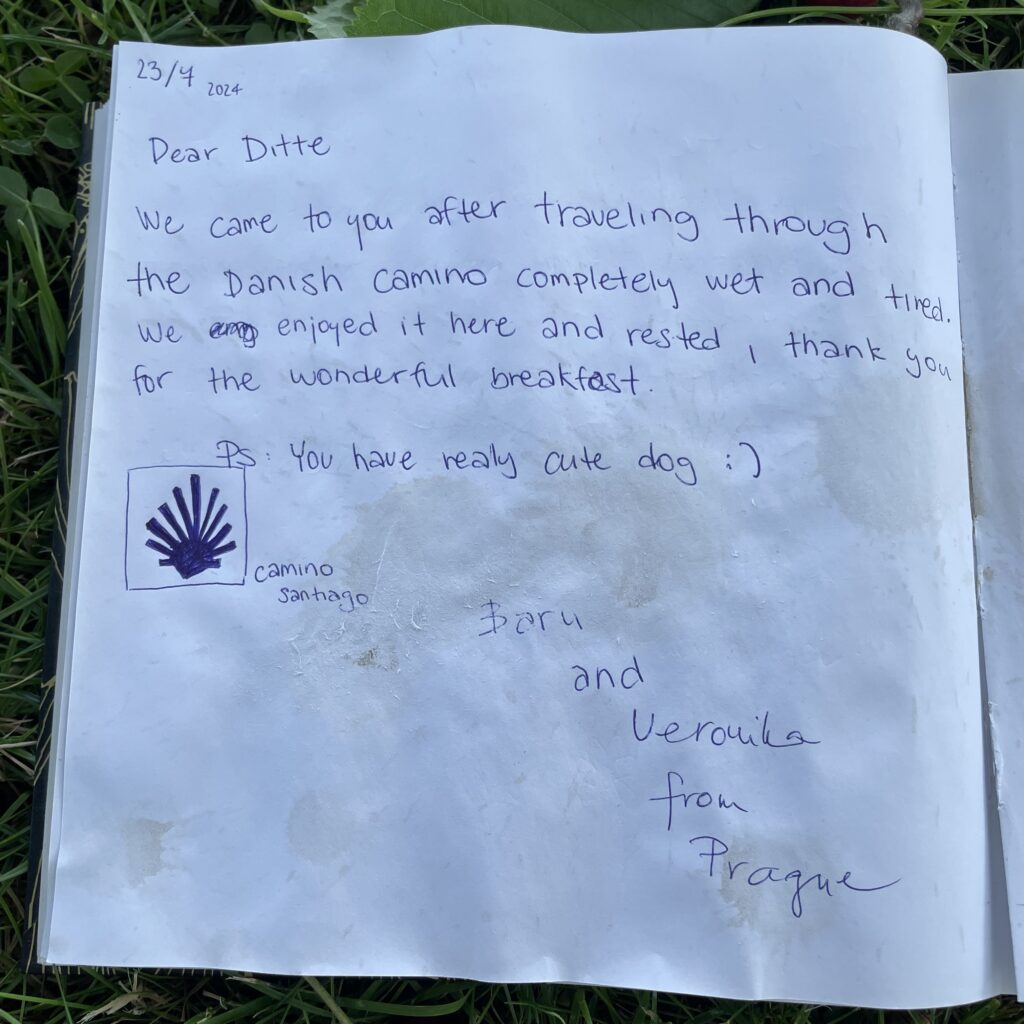 23/7 2024
Dear Ditte
We came to you after traveling through
the Danish camino completely wet and tired.
We enjoyed it here and rested, thank you
for the wonderful breakfast.
Ps: You have realy cute dog :)
camino
santiago
Baru
and
Veronika
from
Prague